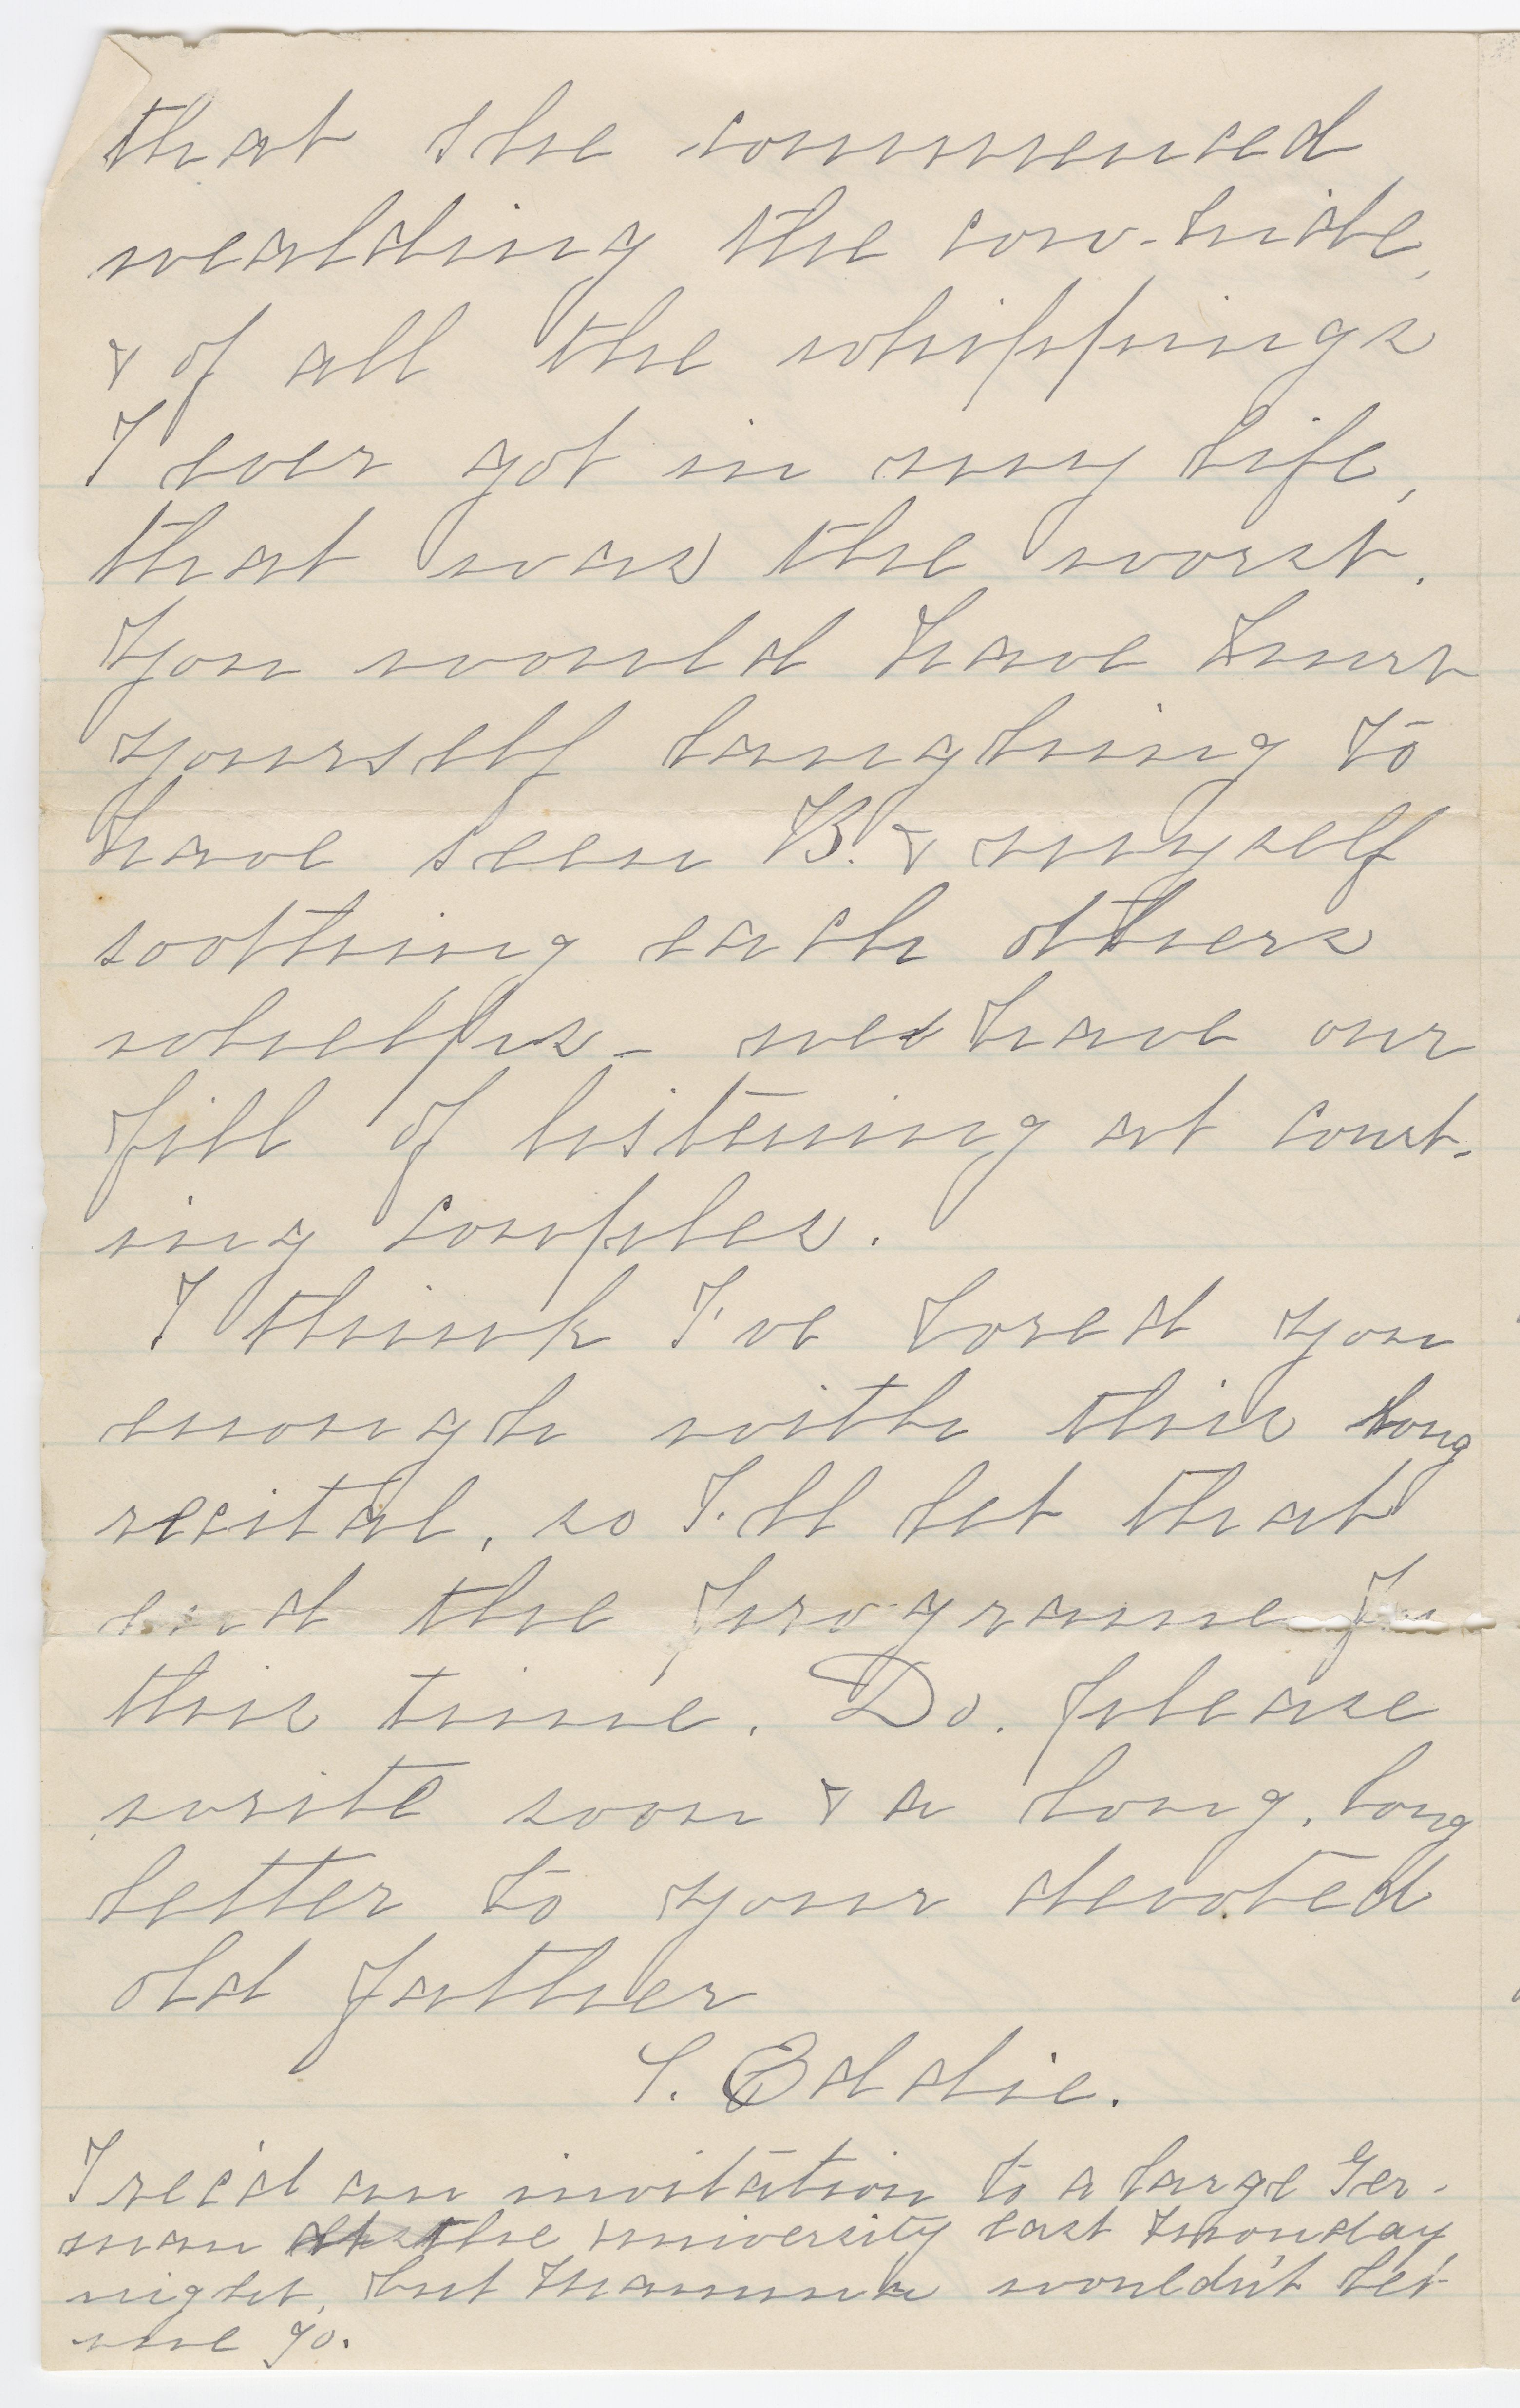 that she commenced
wealding the cow-hide,
& of all the whippings
I ever got in my life,
that was the worst.
You would have hurt
yourself laughing to
have seen B. & myself
soothing each others
whelps - we have our
fill of listening at court-
ing couples.
I think I've bored you
enough with this long
recital, so I'll let that
end the programe
this time. Do. please
write soon & a long, long
letter to your devoted
old father
S. Eddie.
I rec'd an invitation to a large Ger-
man at the university last Monday
night, but Mamma wouldn't let
me go.